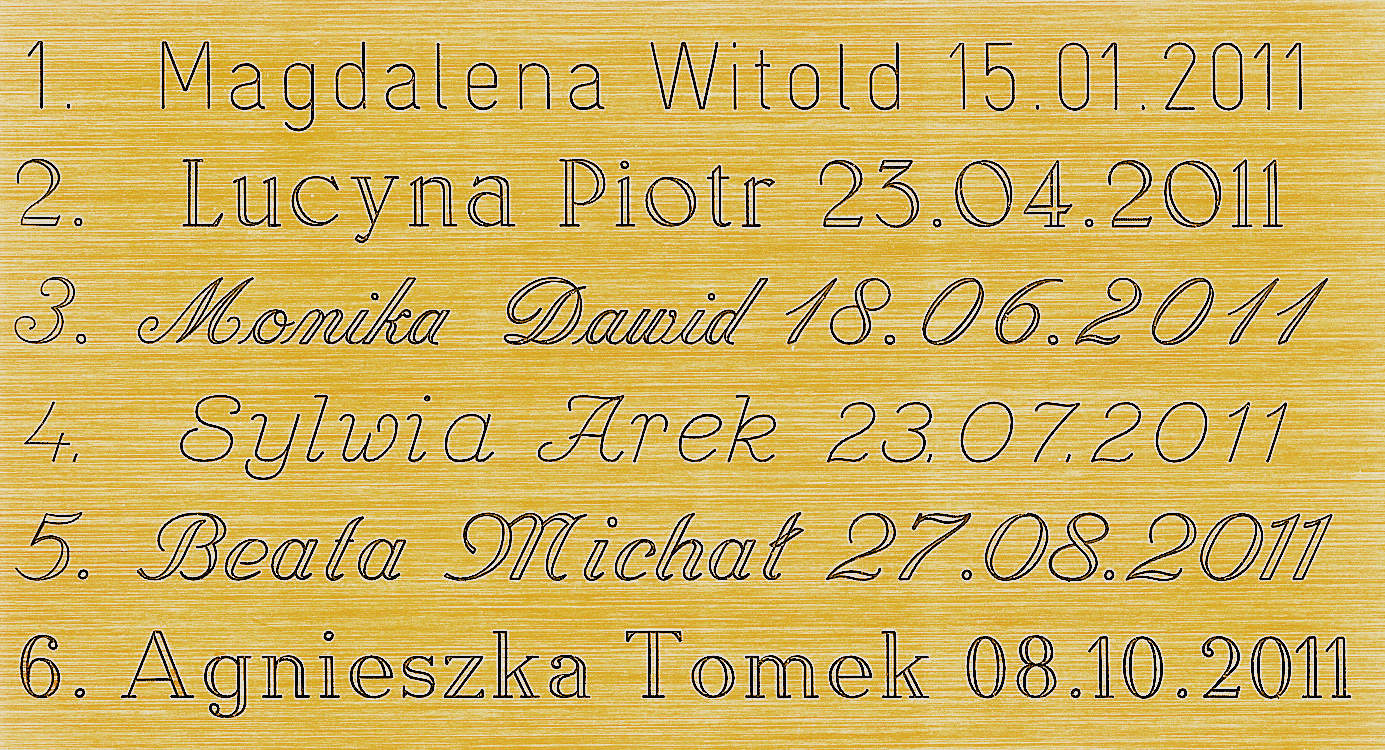 1. Magdalena Witold 15.01.2011
2. Lucyna Piotr 23.04.2011
3. Monika Dawid 18.06.2011
4. Sylwia Arek 23.07.2011
5. Beata Michał 27.08.2011
6. Agnieszka Tomek 08.10.2011